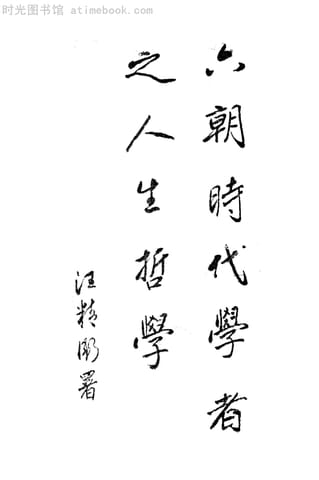 时光图书馆 atimebook.com
六朝時代學者
之人生哲學
汪精衛署